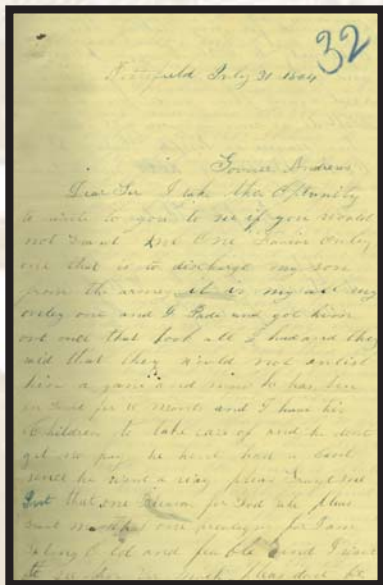 32
Northfield July 31 1864
Governer Andrews
Dear Sir I take the Optunity
to write to you to see if you would
not Grant me One Favor Onley
one that is to discharge my son
from the army it is my all my
onley one and I Paid and got him
out once that took all I had and they
said that they would not enlist
him a gain and now he has ben
in for 10 months and I have his
Children to take care of and he dont
get no pay he hant had a Cent
since he went a way pleas Grant me
that one for God sake pleas
Grant me that one for I am
Old and feable and I want
to see